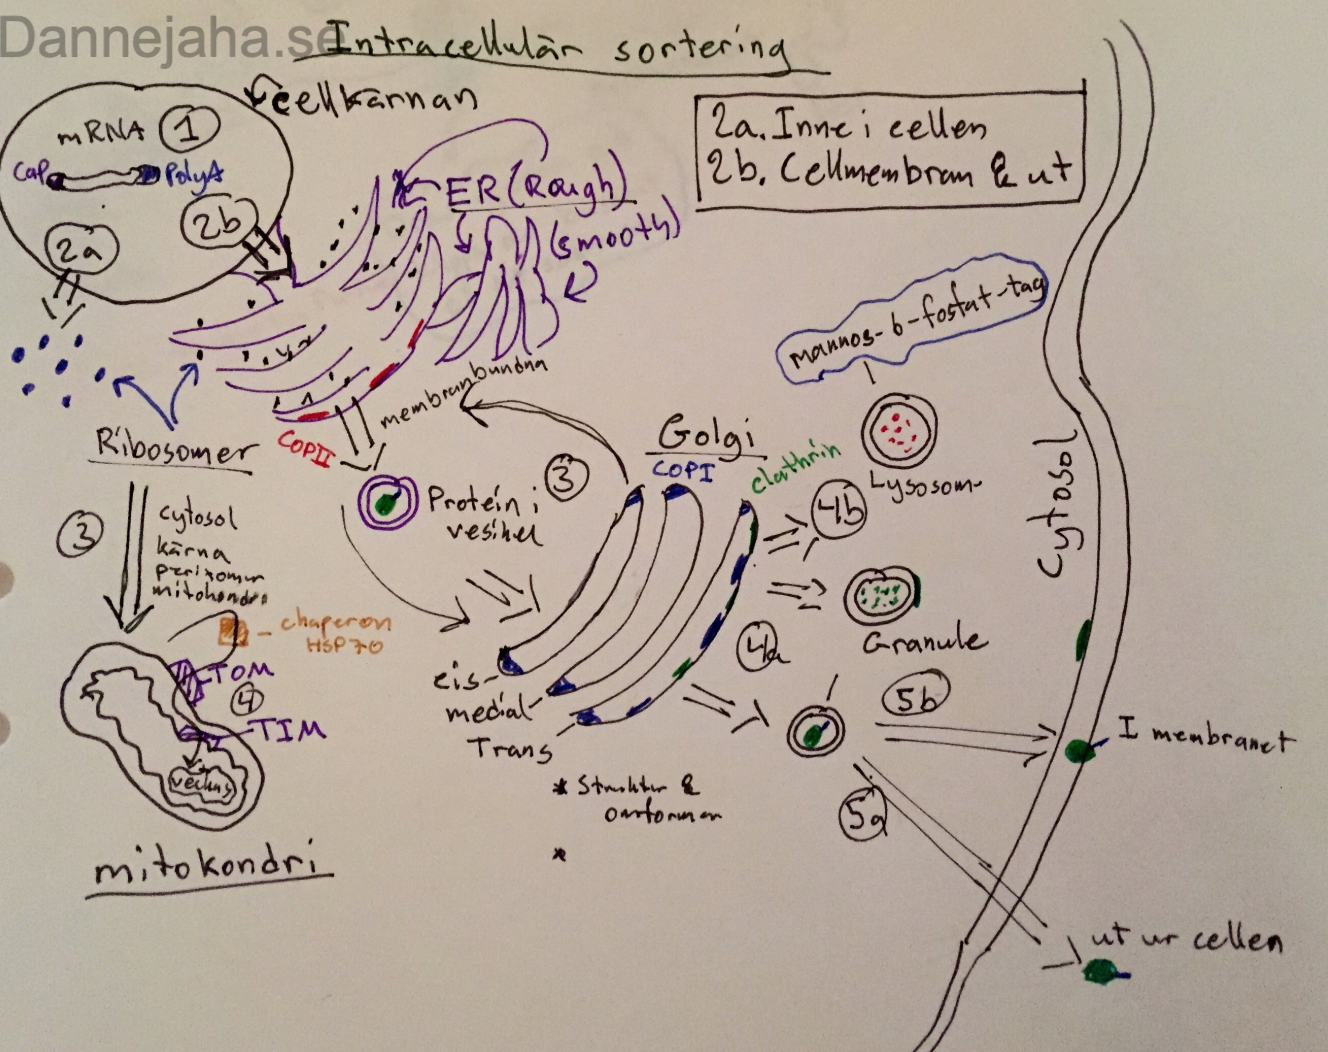 Dannejaha.se
Intracellulär sortering
cellkärnan
mRNA 1
Cap PolyA
2a
2b
2a. Inne i cellen
2b. Cellmembran & ut
ER (Rough)
(smooth)
mannos-6-fosfat-tag
Lysosom
Ribosomer
COPII
membranbundna
Protein i
vesikel
3
Golgi
COPI
clathrin
4b
Cytosol
3
cytosol
kärna
mitokondrie
chaperon
HSP70
TOM
4
TIM
mitokondri
cis
medial
Trans
* Struktur &
*
Granule
4a
5b
5a
I membranet
ut ur cellen